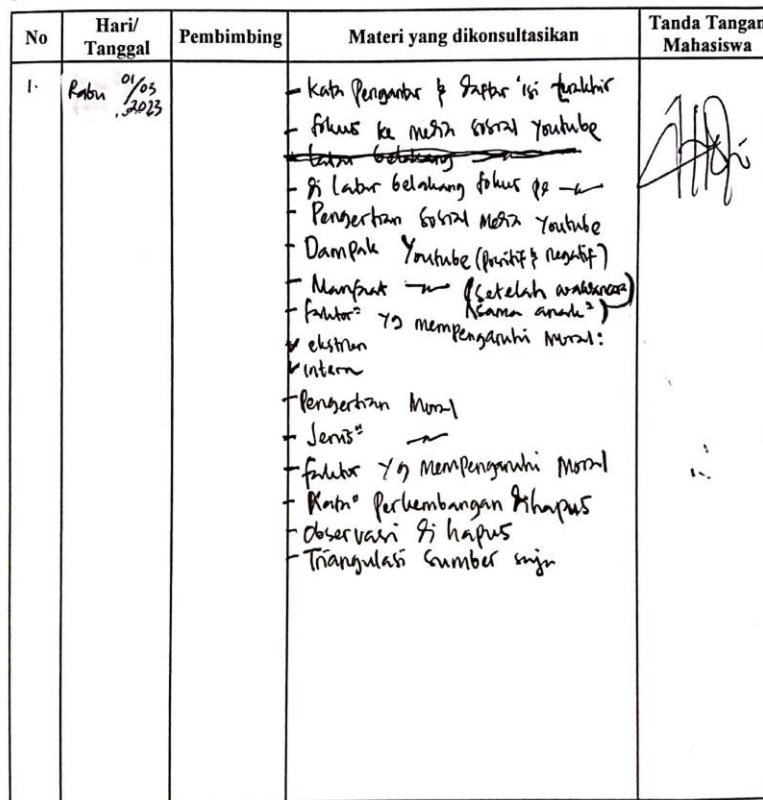 No Hari/ Tanggal Pembimbing Materi yang dikonsultasikan Tanda Tangan Mahasiswa
1. Rabu 01/03 2023
- Kata Pengantar & daftar isi terakhir
- fokus ke media sosial Youtube
- Latar belakang
- di latar belakang fokus pe
- Pengertian Sosial Media Youtube
- Dampak Youtube (positif & negatif)
- Manfaat (setelah wawancara
sama anak²)
- faktor² yg mempengaruhi Moral:
✓ ekstrn
✓ intern
- Pengertian Moral
- Jenis²
- faktor yg mempengaruhi Moral
- Kata² Perkembangan dihapus
- Observasi di hapus
- Triangulasi sumber saja